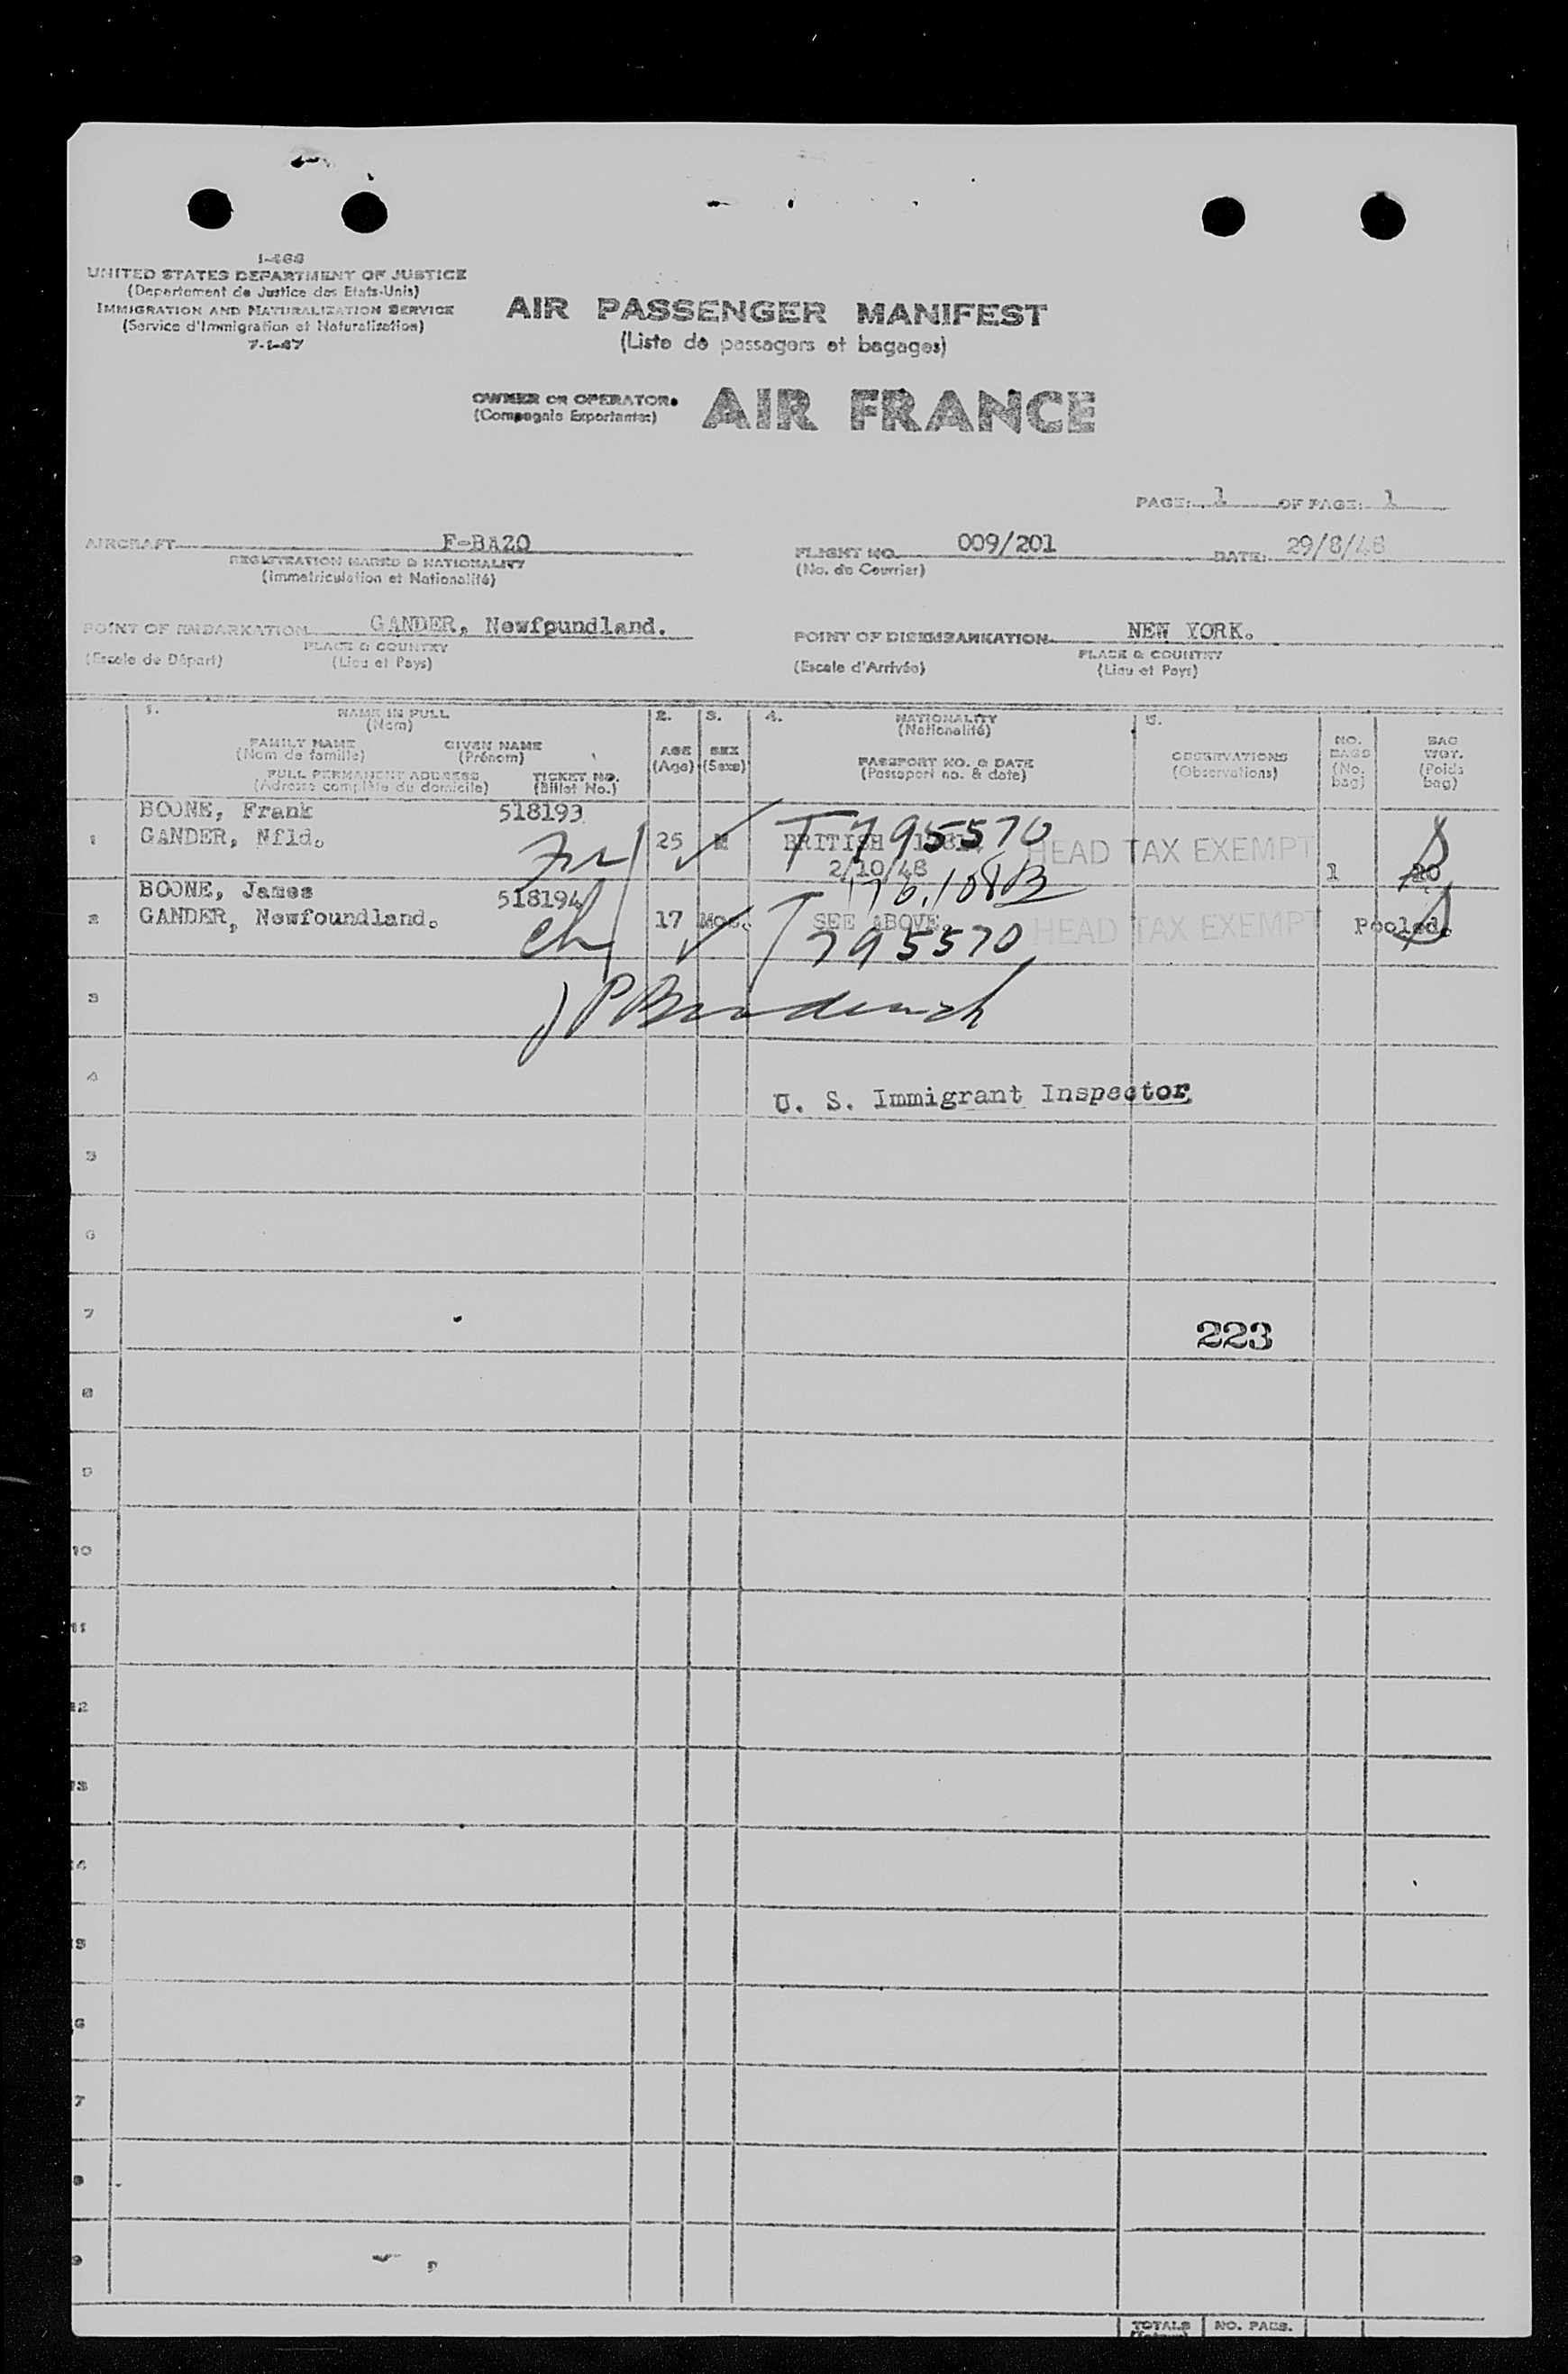 I-466
UNITED STATES DEPARTMENT OF JUSTICE
(Departement de Justice des Etats-Unis)
IMMIGRATION AND NATURALIZATION SERVICE
(Service d'Immigration et Naturalisation)
7-1-47
AIR PASSENGER MANIFEST
(Liste de passagers et bagages)
OWNER OR OPERATOR.
(Compagnie Exportante:)
AIR FRANCE
PAGE: 1 OF PAGE: 1
AIRCRAFT F-BAZO
REGISTRATION MARKS & NATIONALITY
(Immatriculation et Nationalité)
FLIGHT NO. 009/201 DATE: 29/8/48
(No. de Courrier)
POINT OF EMBARKATION GANDER, Newfoundland.
PLACE & COUNTRY
(Escale de Départ) (Lieu et Pays)
POINT OF DISEMBARKATION NEW YORK.
PLACE & COUNTRY
(Escale d'Arrivée) (Lieu et Pays)
1. NAME IN FULL
(Nom)
FAMILY NAME GIVEN NAME
(Nom de famille) (Prénom)
FULL PERMANENT ADDRESS TICKET NO.
(Adresse complète du domicile) (Billet No.)
2.
AGE
(Age)
3.
SEX
(Sexe)
4. NATIONALITY
(Nationalité)
PASSPORT NO. & DATE
(Passeport no. & date)
5.
OBSERVATIONS
(Observations)
NO.
BAGS
(No.
bag)
BAG
WGT.
(Poids
bag)
1
BOONE, Frank 518193
GANDER, Nfld.
25 M BRITISH
T 795570
2/10/48
HEAD TAX EXEMPT
1 20
2
BOONE, James 518194
GANDER, Newfoundland.
ch
17 Mos. SEE ABOVE.
T 795570
HEAD TAX EXEMPT
Pooled.
3
4
U. S. Immigrant Inspector
5
6
7
223
8
9
10
11
12
13
14
15
16
17
18
19
TOTALS NO. PAGS.